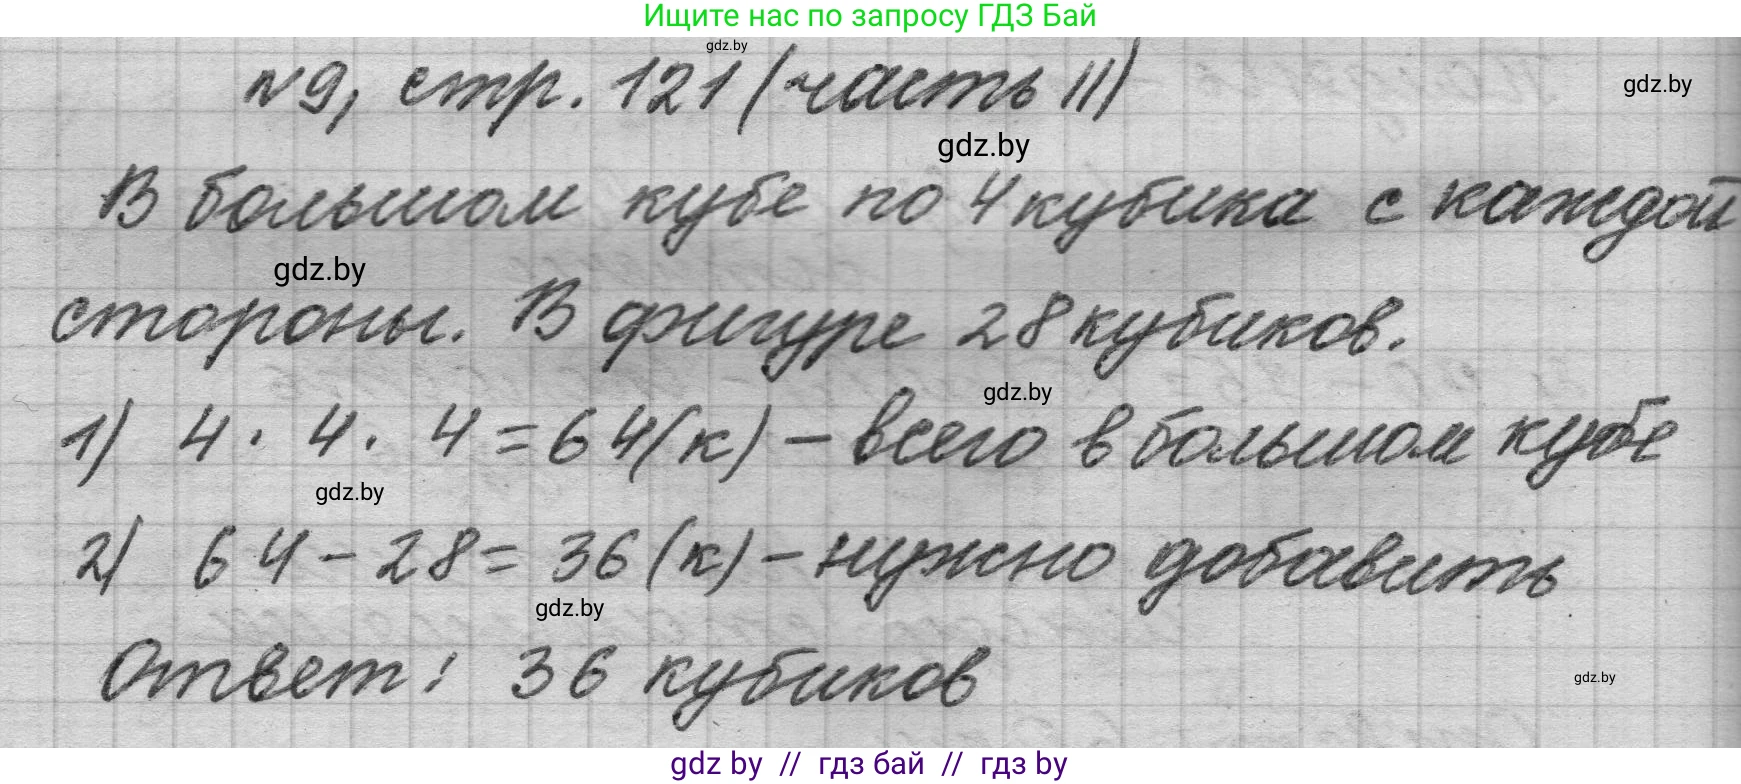 Ищите нас по запросу ГДЗ Бай
gdz.by
№9, стр. 121 (часть II)
gdz.by
gdz.by
В большом кубе по 4 кубика с каждой
gdz.by
стороны. В фигуре 28 кубиков.
gdz.by
1) 4 · 4 · 4 = 64 (к) – всего в большом кубе
gdz.by
2) 64 – 28 = 36 (к) – нужно добавить
gdz.by
Ответ: 36 кубиков
gdz.by
gdz by // гдз бай // гдз by